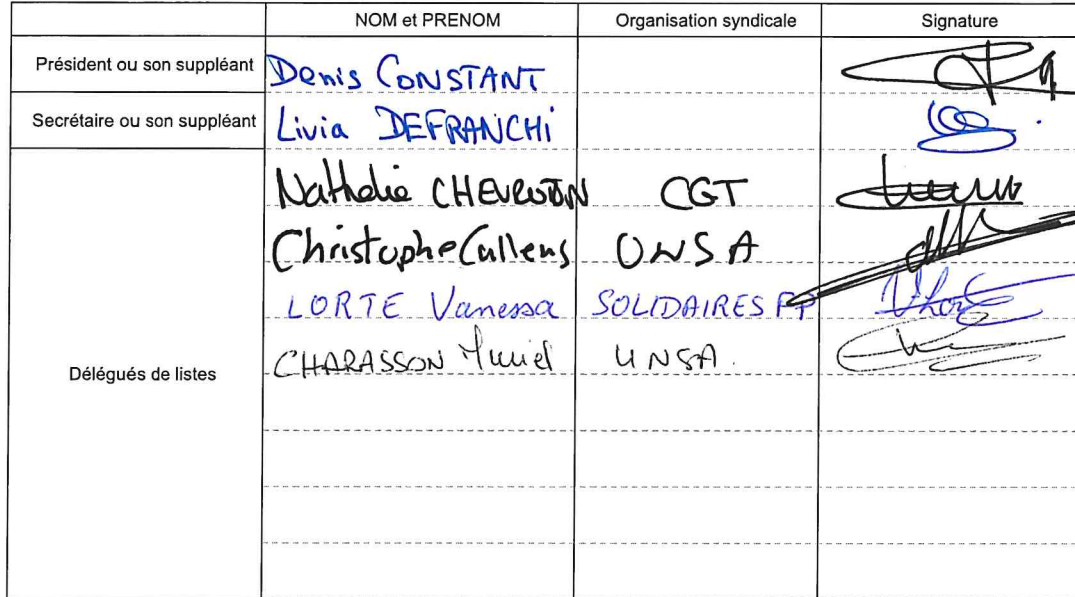 NOM et PRENOM Organisation syndicale Signature
Président ou son suppléant Denis CONSTANT
Secrétaire ou son suppléant Livia DEFRANCHI
Nathalie CGT
Christophe Callens UNSA
LORTE Vanessa SOLIDAIRES FP
Délégués de listes CHARASSON Muriel UNSA.